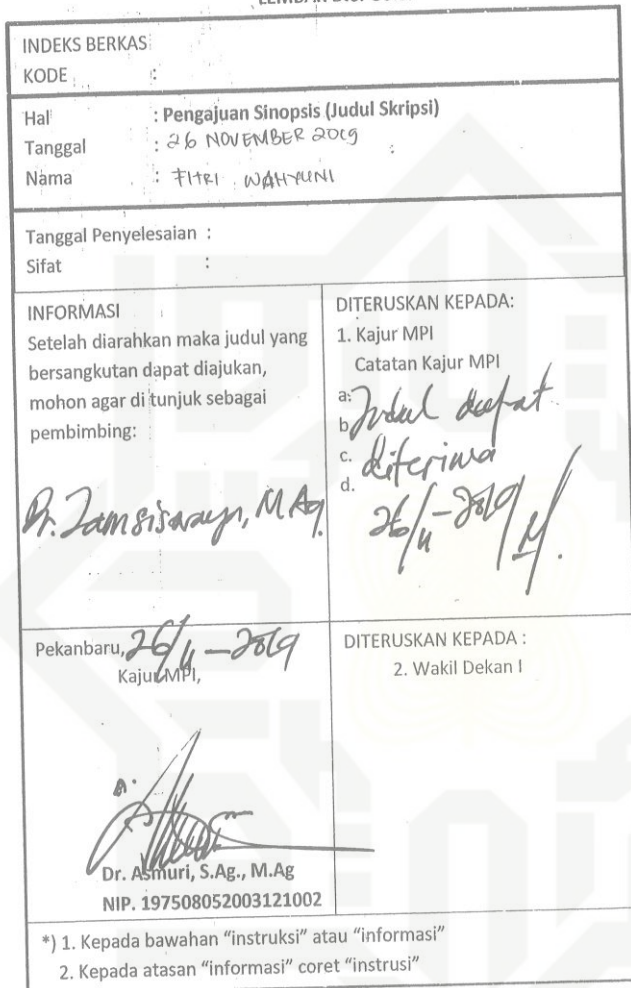 INDEKS BERKAS:
KODE :
Hal : Pengajuan Sinopsis (Judul Skripsi)
Tanggal : 26 NOVEMBER 2019
Nama : FITRI WAHYUNI
Tanggal Penyelesaian :
Sifat :
INFORMASI
Setelah diarahkan maka judul yang
bersangkutan dapat diajukan,
mohon agar di tunjuk sebagai
pembimbing:
Dr. Zamsiswaya, M.Ag
DITERUSKAN KEPADA:
1. Kajur MPI
Catatan Kajur MPI
a. Judul dapat
b.
c. diterima
d.
26/11-2019
Pekanbaru, 26/11-2019
Kajur MPI,
Dr. Asmuri, S.Ag., M.Ag
NIP. 197508052003121002
DITERUSKAN KEPADA :
2. Wakil Dekan I
*) 1. Kepada bawahan "instruksi" atau "informasi"
2. Kepada atasan "informasi" coret "instrusi"